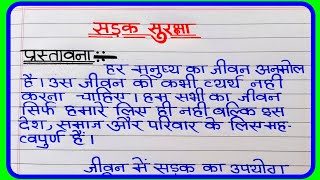 सड़क सुरक्षा
प्रस्तावना :-
हर मनुष्य का जीवन अनमोल
हैं। उस जीवन को कभी व्यर्थ नही
करना चाहिए। हम सभी का जीवन
सिर्फ हमारे लिए ही नही बल्कि इस
देश, समाज और परिवार के लिए मह-
त्वपुर्ण हैं।
जीवन में सड़क का उपयोग